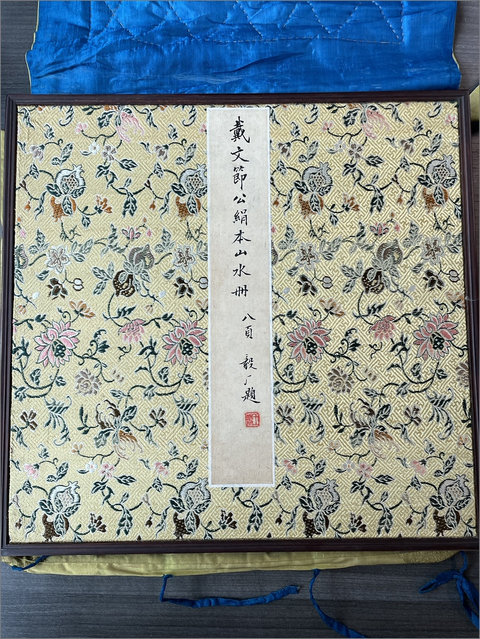 戴文節公絹本山水冊 八頁 毅厂題